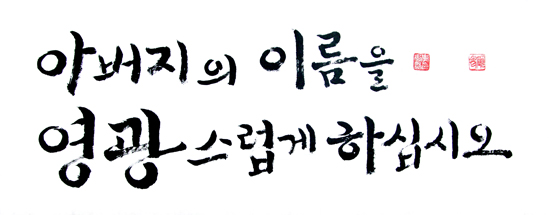 아버지의 이름을
영광스럽게 하십시오